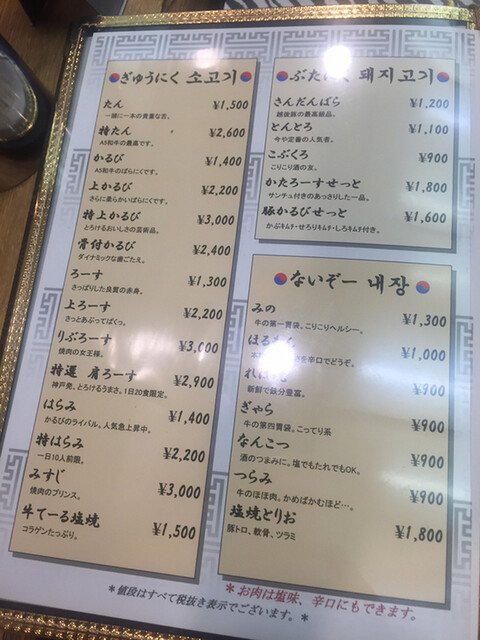 ぎゅうにく 소고기
たん ¥1,500
一頭に一本の貴重な舌。
特たん ¥2,600
A5和牛の最高です。
かるび ¥1,400
A5和牛のばらにくです。
上かるび ¥2,200
さらに柔らかいばらにくです。
特上かるび ¥3,000
とろけるおいしさの芸術品。
骨付かるび ¥2,400
ダイナミックな歯ごたえ。
ろーす ¥1,300
さっぱりした良質の赤身。
上ろーす ¥2,200
さっとあぶってぱくっ。
りぶろーす ¥3,000
焼肉の女王様。
特選 肩ろーす ¥2,900
神戸発、とろけるうまさ。1日20食限定。
はらみ ¥1,400
かるびのライバル。人気急上昇中。
特はらみ ¥2,200
一日10人前限。
みすじ ¥3,000
焼肉のプリンス。
牛てーる塩焼 ¥1,500
コラゲンたっぷり。
ぶた 돼지고기
さんだんばら ¥1,200
越後豚の最高部品。
とんとろ ¥1,100
今や定番の人気者。
こぶくろ ¥900
こりこり酒の友。
かたろーすせっと ¥1,800
サンチュ付きのあっさりした一品。
豚かるびせっと ¥1,600
かぶキムチ・せろりキムチ・しろキムチ付き。
ないぞー 내장
みの ¥1,300
牛の第一胃袋、こりこりヘルシー。
ほるもん ¥1,000
を辛口でどうぞ。
¥900
新鮮で鉄分豊富。
ぎゃら ¥900
牛の第四胃袋。こってり系
なんこつ ¥900
酒のつまみに。塩でもたれでもOK。
つらみ ¥900
牛のほほ肉。かめばかむほど…。
塩焼とりお ¥1,800
豚トロ、軟骨、ツラミ
*値段はすべて税抜き表示でございます。*
*お肉は塩味、辛口にもできます。